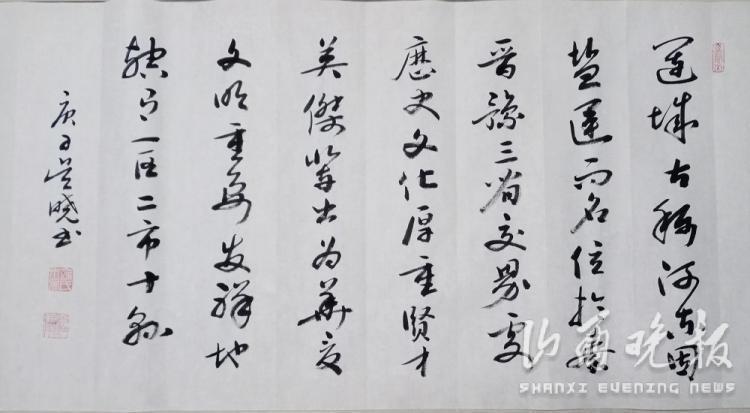 運城古稱河东因
盐運而名位於秦
晋豫三省交界處
歷史文化厚重賢才
英傑輩出为華夏
文明重要发祥地
轄一區二市十縣
庚子吴曉书
山西晚报
SHANXI EVENING NEWS